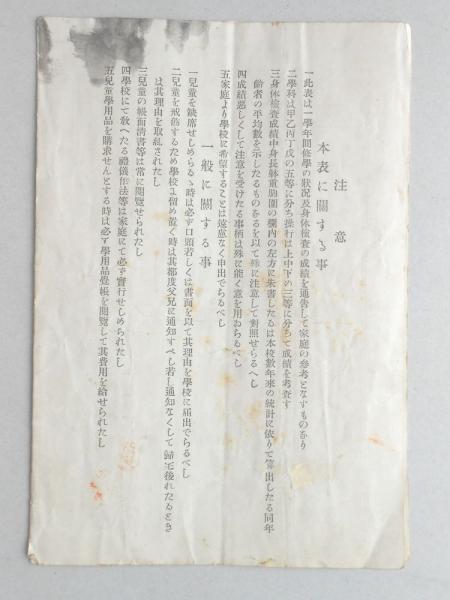 注意
本表に關する事
一此表は一學年間修學の狀況及身体檢査の成績を通告して家庭の參考となすものなり
二學科は甲乙丙丁戊の五等に分ち操行は上中下の三等に分ちて成績を考査す
三身体檢査成績中身長躰重胸圍の欄內の左方に朱書したるは本校數年來の統計に依りて算出したる同年
齡者の平均數を示したるものなるを以て殊に注意して對照せらるへし
四成績惡しくして注意を受けたる事柄は殊に能く意を用おらるべし
五家庭より學校に希望することは遠慮なく申出でらるべし
一般に關する事
一兒童を缺席せしめらるゝ時は必ず口頭若しくは書面を以て其理由を學校に届出でらるべし
二兒童を戒飭するため學校に留め置く時は其都度父兄に通知すべし若し通知なくして歸宅後れたるとき
は其理由を取糺されたし
三兒童の帳面淸書等は常に閱覽せられたし
四學校にて敎へたる禮儀作法等は家庭にて必ず實行せしめられたし
五兒童學用品を購求せんとする時は必ず學用品覺帳を閱覽して其費用を給せられたし